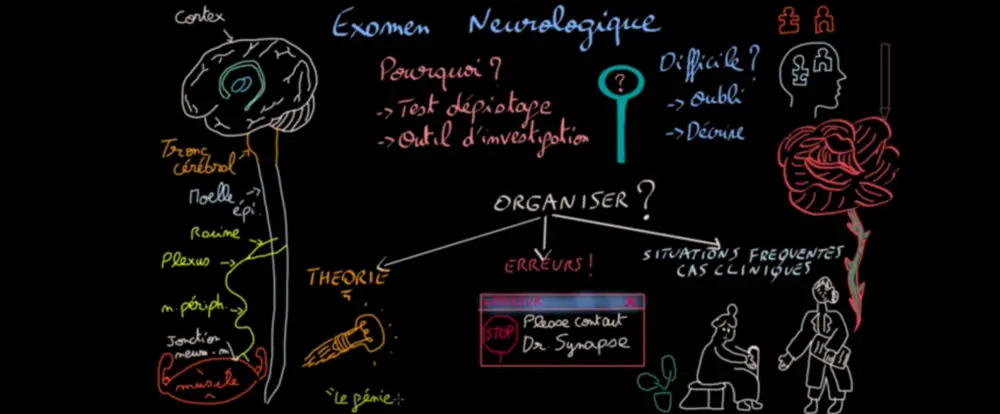 Cortex
Examen Neurologique
Pourquoi ?
-> Test dépistage
-> Outil d'investigation
?
Difficile ?
-> Oubli
-> Décrire
Tronc
cérébral
Moelle
épi.
Racine
Plexus
n. périph.
Jonction
neuro-m
muscle
ORGANISER ?
THEORIE
ERREURS !
SITUATIONS FREQUENTES
CAS CLINIQUES
ERREUR X
STOP
Please contact
Dr. Synapse
Le génie